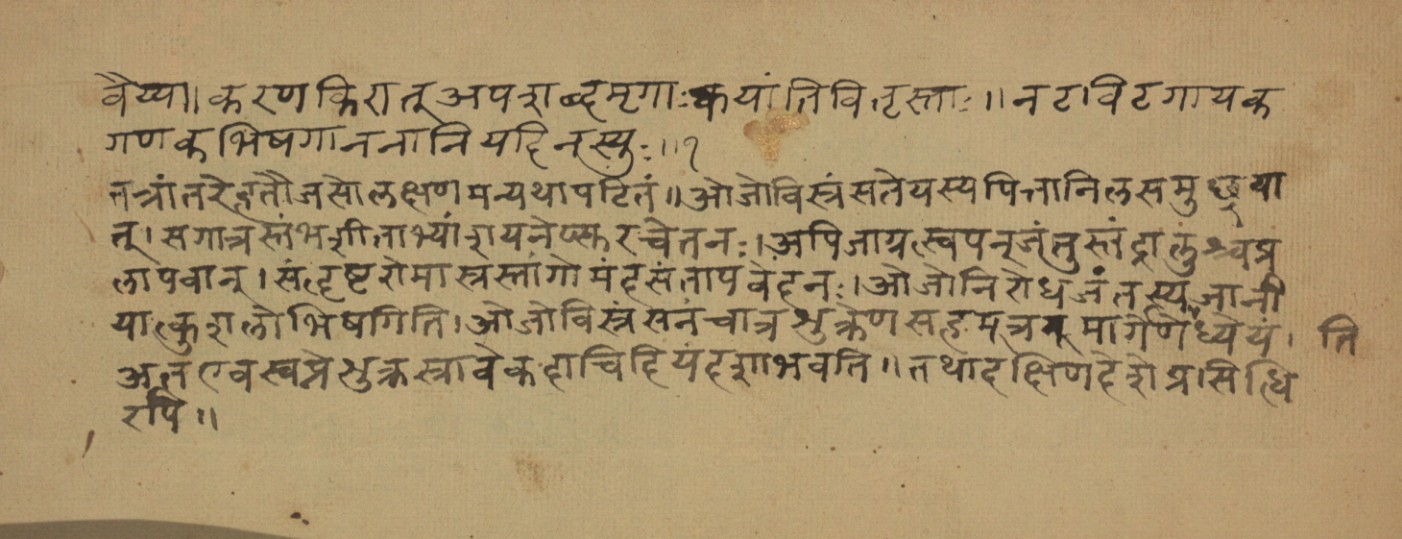 वैय्या॥करणकिरातू अपशब्दमृगाः क्व यांति वितृस्ताः॥ नटविटगायक
गणकभिषगाननानि यदि न स्युः॥१
तत्रांतरेहृतौजसोलक्षणमन्यथापठितं॥ ओजोविस्त्रंसतेयस्यपित्तानिलसमुछ्रया
त्। सगात्रस्तंभशीताभ्यांशयने चेतनः। अपिजाग्रत्स्वपन्जंतुस्तंद्रालुंश्चप्र
लापवान्। संहृष्टरोमास्त्रस्तांगोमंदसंतापवेदनः। ओजोनिरोधजंतस्यजानी
यात्कुशलोभिषगिति। ओजोविस्त्रंसनंचात्रशुक्रेणसहमूत्रमार्गेणध्येयं। ति
अतएवस्वप्नेशुक्रस्त्रावेकदाचिदियंदशाभवति॥ तथादक्षिणदेशेप्रसिद्धि
रपि॥